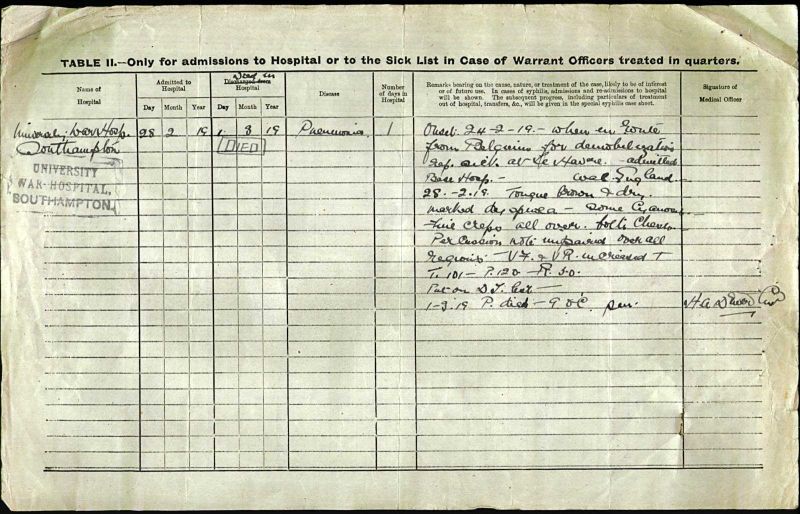 TABLE II.—Only for admissions to Hospital or to the Sick List in Case of Warrant Officers treated in quarters.
Name of Hospital
Admitted to Hospital
Day Month Year
Died in
Discharged from Hospital
Day Month Year
Disease
Number of days in Hospital
Remarks bearing on the cause, nature, or treatment of the case, likely to be of interest
or of future use. In cases of syphilis, admissions and re-admissions to hospital
will be shown. The subsequent progress, including particulars of treatment
out of hospital, transfers, &c., will be given in the special syphilis case sheet.
Signature of Medical Officer
University War Hosp.
Southampton
28 2 19
1 3 19
DIED
Pneumonia
1
UNIVERSITY
WAR-HOSPITAL,
SOUTHAMPTON.
Onset 24-2-19 - when en route
from Belgium for demobilization
Rep. sick at Le Havre - admitted
Base Hosp. - England.
28.-2.19. Tongue Brown & dry.
marked dyspnoea - some Cyanosis
Fine creps all over both Chest
Percussion note impaired over all
regions - V.F. & V.R. increased
T. 101 - P. 120 - R. 50.
Put on D.I. list -
1-3-19 P. died - 9
H. A.